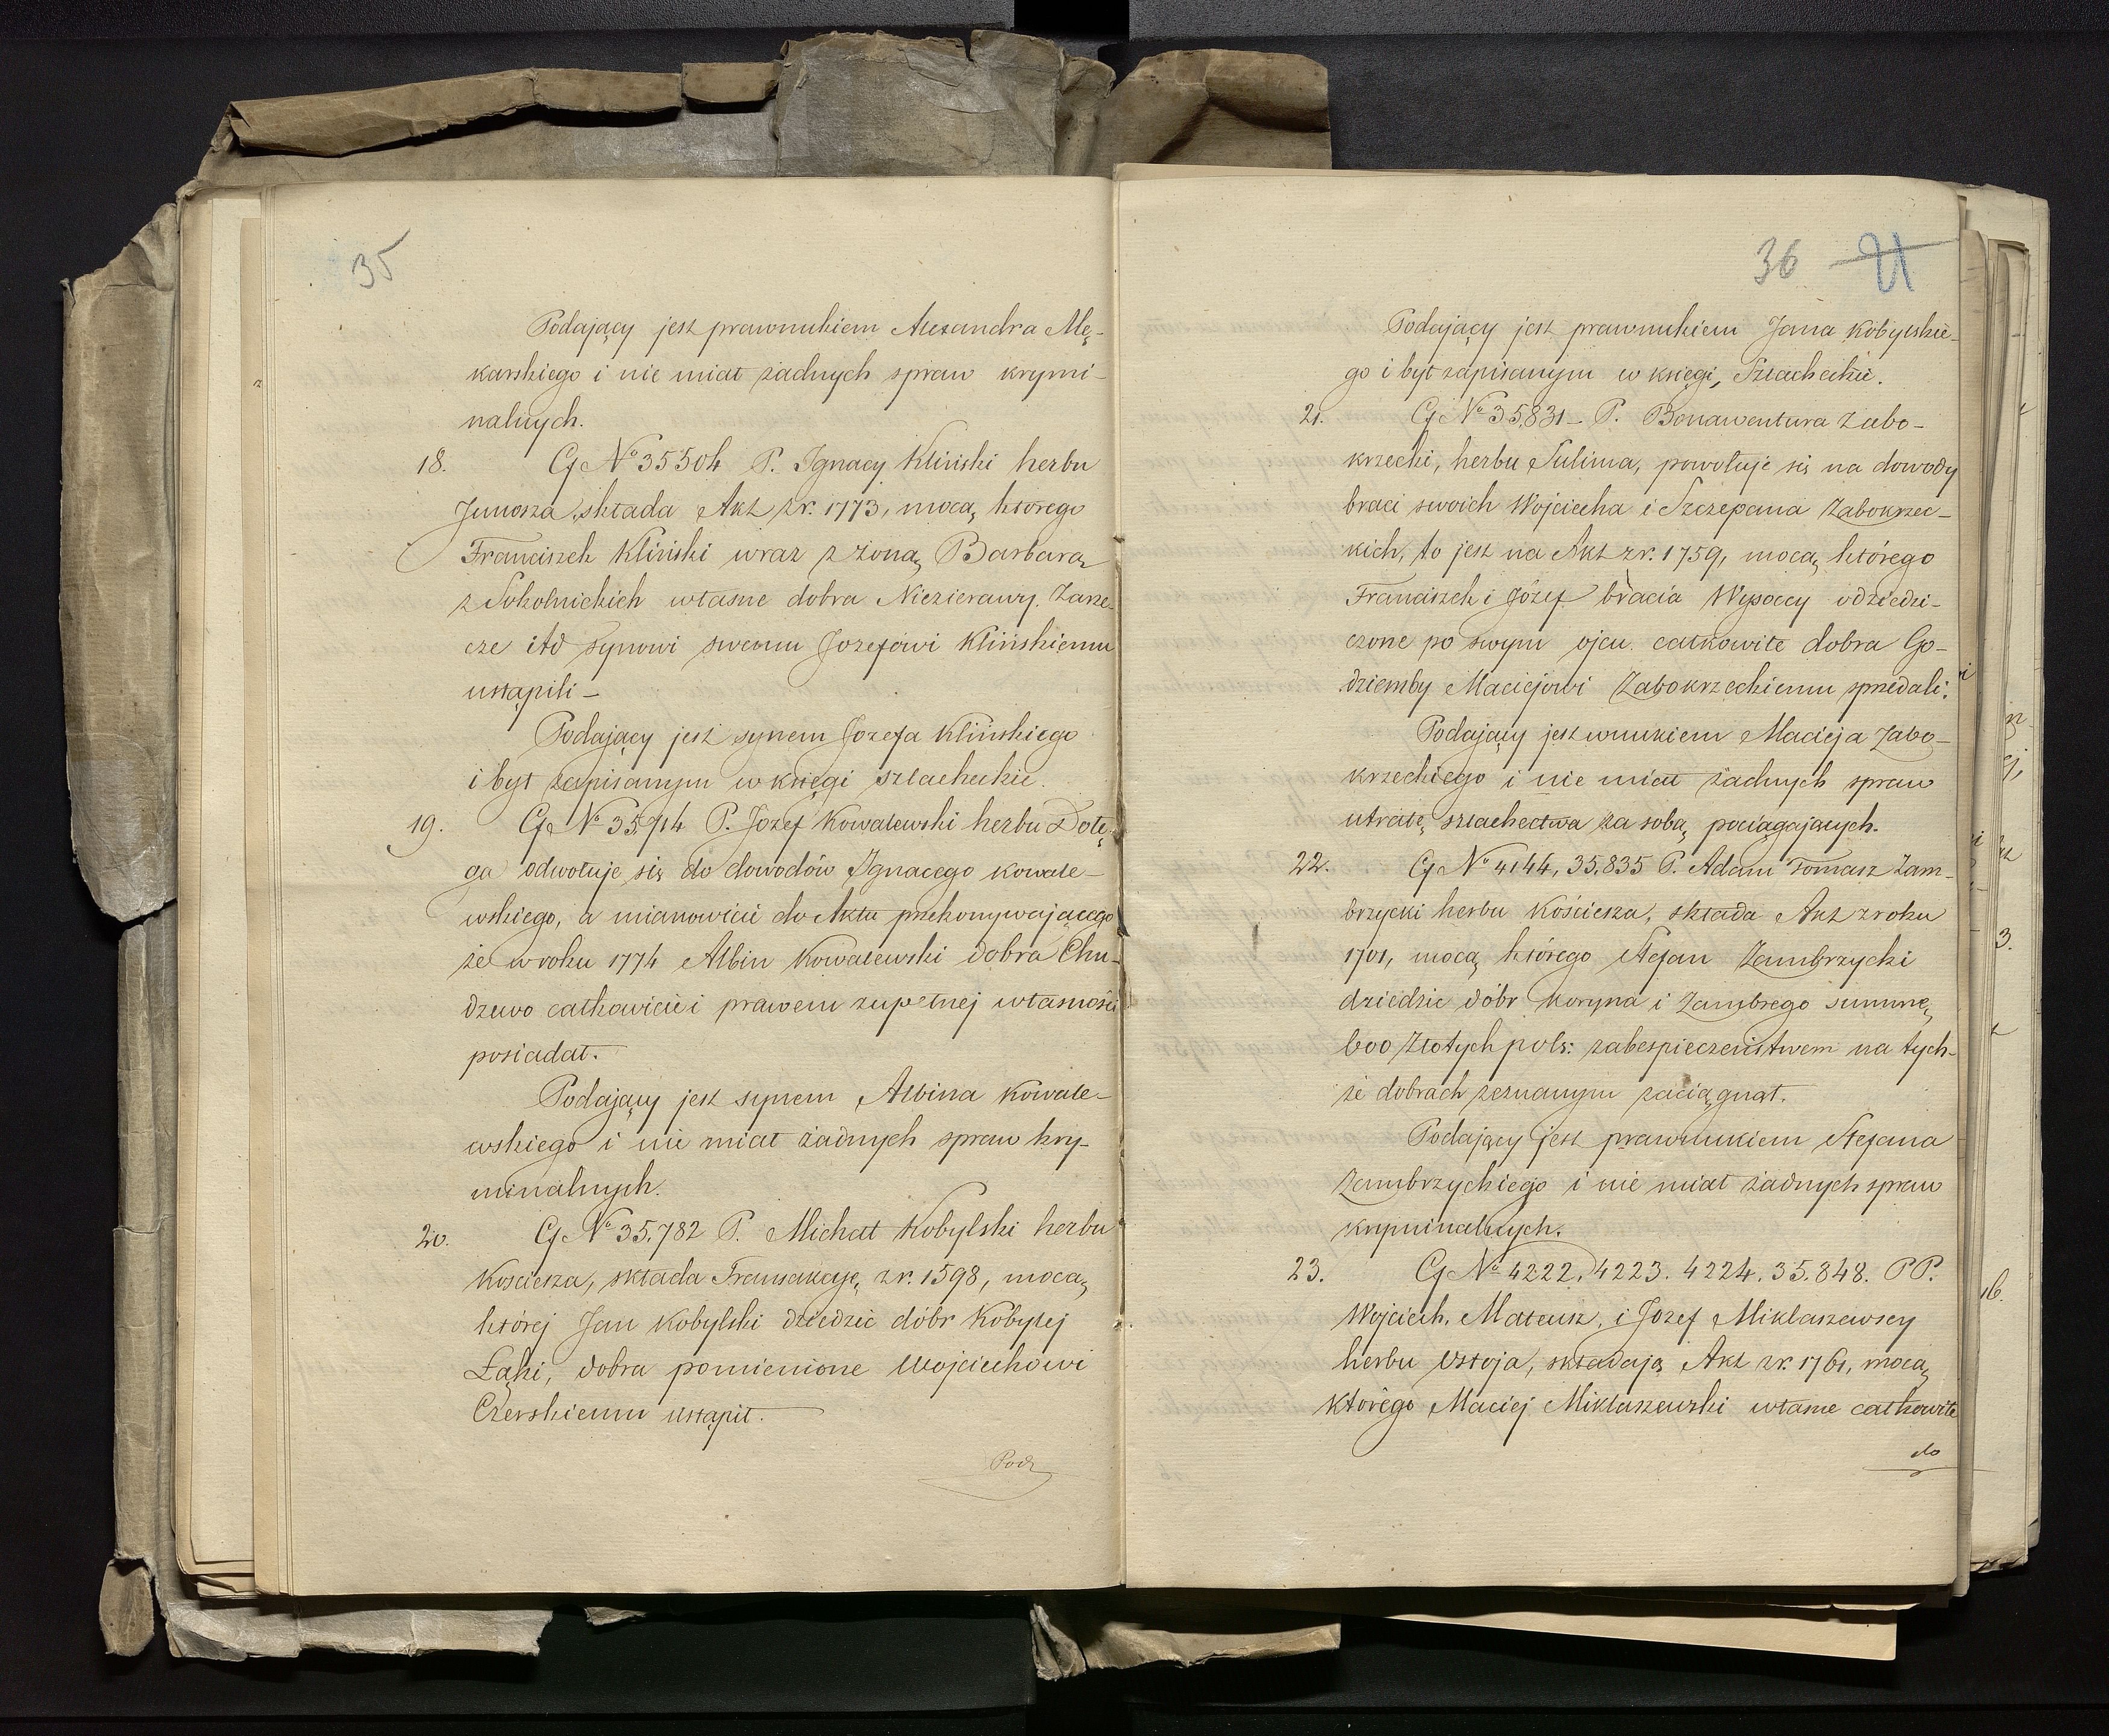 35
Podający jest prawnukiem Alexandra Mę-
karskiego i nie miał żadnych spraw krymi-
nalnych.
18. G № 35504 P. Ignacy Kliński herbu
Junosza, składa Akt z r. 1773, mocą którego
Franciszek Kliński wraz z żoną Barbarą
z Sokolnickich własne dobra Niezierawy. Zarze-
cze itd synowi swemu Jozefowi Klińskiemu
ustąpili –
Podający jest synem Jozefa Klińskiego
i był zapisanym w księgi szlacheckie.
19. G № 35,714 P. Jozef Kowalewski herbu Dołę-
ga odwołuje się do dowodów Ignacego Kowale-
wskiego, a mianowicie do Aktu przekonywającego
że w roku 1774 Albin Kowalewski dobra Chu-
dzewo całkowicie i prawem zupełnej własności
posiadał.
Podający jest synem Albina Kowale-
wskiego i nie miał żadnych spraw kry-
minalnych.
20. G № 35.782 P. Michał Kobylski herbu
Kościesza, składa Transakcyę z r. 1598, mocą
której Jan Kobylski dziedzic dóbr Kobyłej
Łąki, dobra pomienione Wojciechowi
Czerskiemu ustąpił.
Pod
36 21
Podający jest prawnukiem Jana Kobylskie-
go i był zapisanym w księgi Szlacheckie.
21. G № 35,831 – P. Bonawentura Zabo-
krzecki, herbu Sulima, powołuje się na dowody
braci swoich Wojciecha i Szczepana Zabokrzec-
kich, to jest na Akt z r. 1759, mocą którego
Franciszek i Józef bracia Wysoccy odziedzi-
czone po swym ojcu całkowite dobra Go-
dziemby Maciejowi Zabokrzeckiemu sprzedali.
Podający jest wnukiem Macieja Zabo-
krzeckiego i nie miał żadnych spraw
utratę szlachectwa za sobą pociągających.
22. G № 4144, 35.835 P. Adam Tomasz Zam-
brzycki herbu Kościesza, składa Akt z roku
1701, mocą którego Stefan Zambrzycki
dziedzic dóbr Koryna i Zambrego summę
600 złotych pols: zabespieczeństwem na tych-
że dobrach zeznanym zaciągnął.
Podający jest prawnukiem Stefana
Zambrzyckiego i nie miał żadnych spraw
kryminalnych.
23. G № 4222. 4223. 4224. 35.848. PP.
Wojciech, Mateusz, i Jozef Miklaszewscy
herbu Ostoja, składają Akt z r. 1761, mocą
którego Maciej Miklaszewski własne całkowite
do